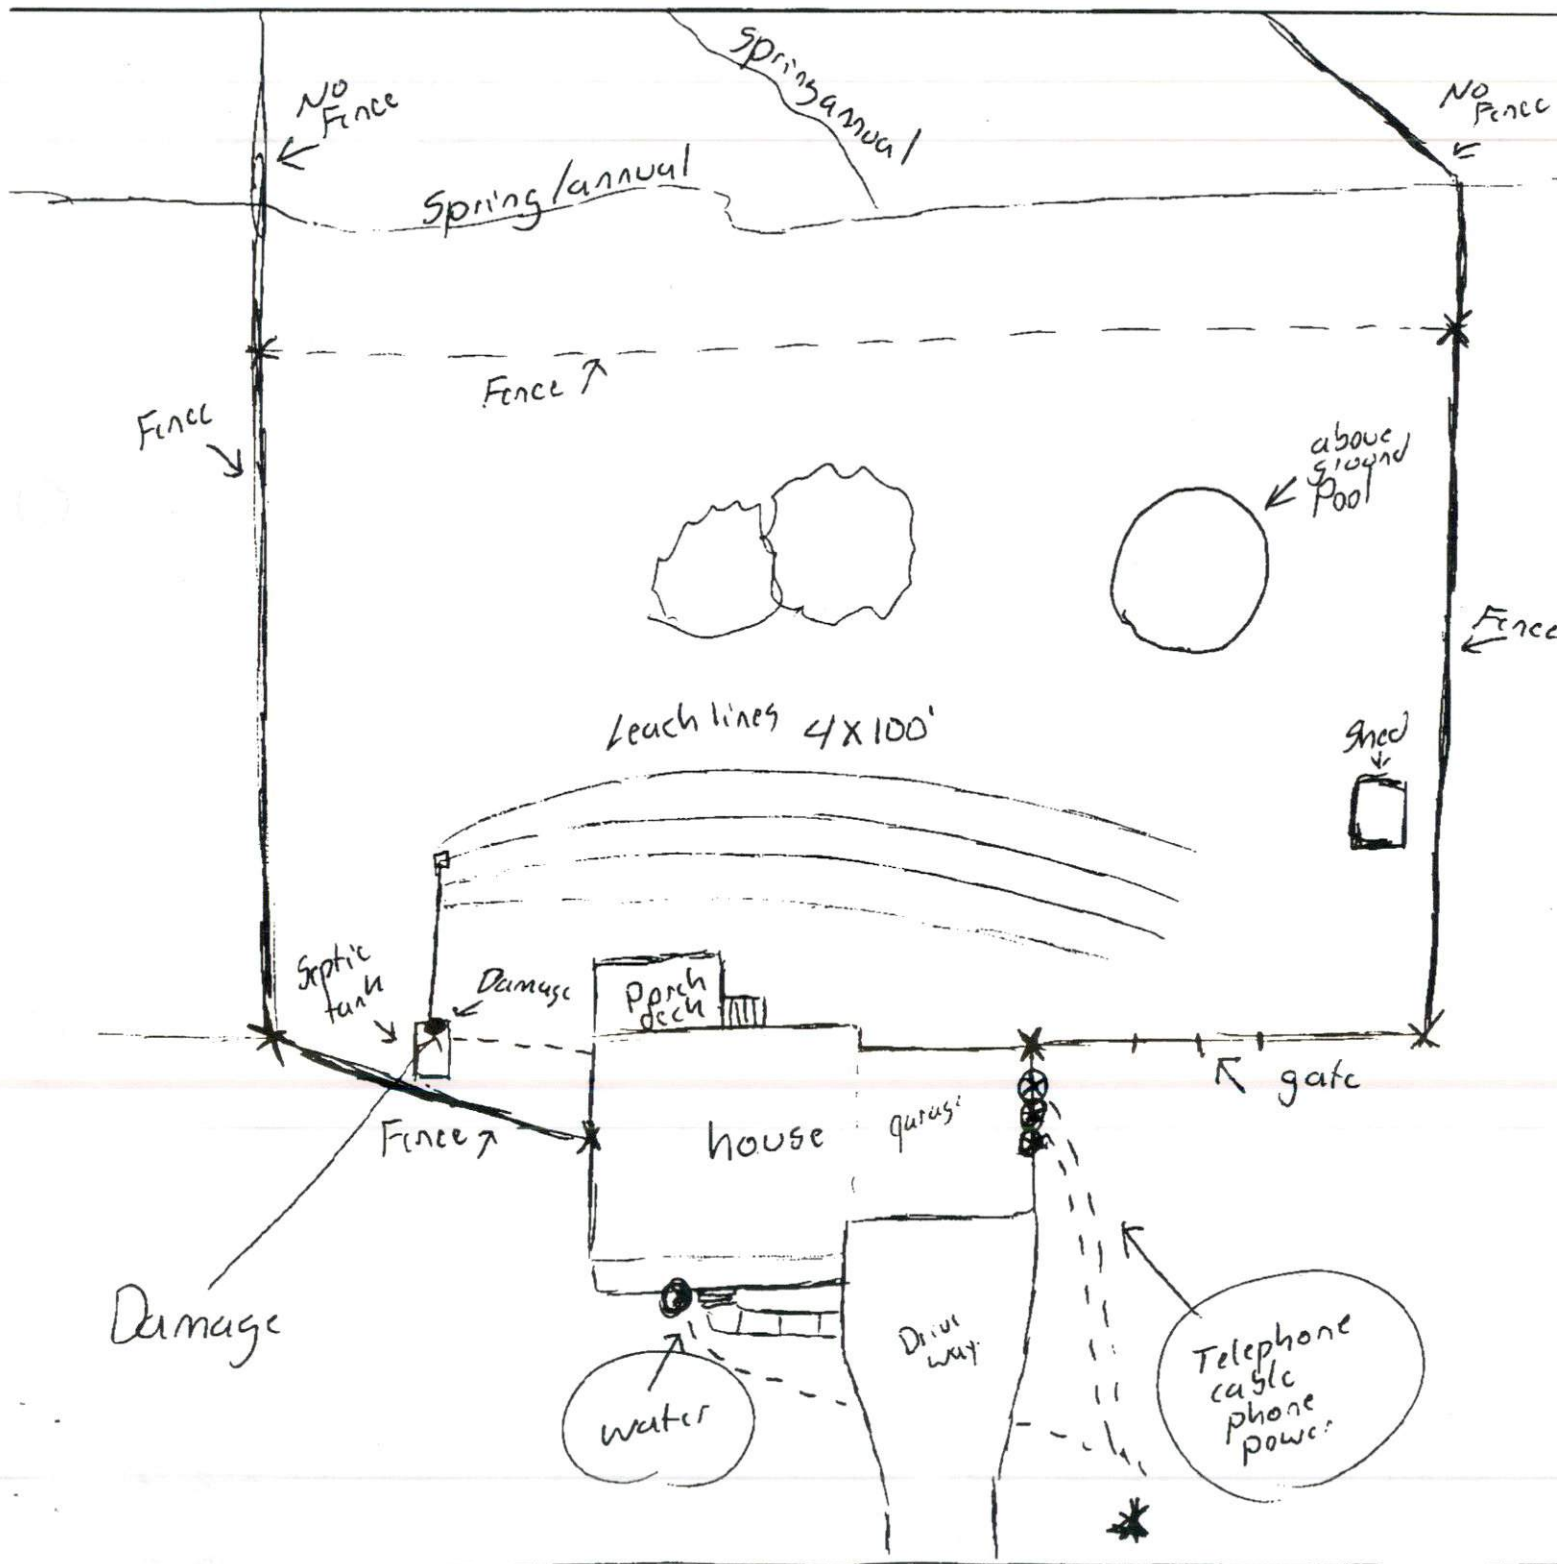 No
Fence
Spring annual
No
Fence
Spring/annual
Fence
Fence
above
ground
pool
Fence
Leach lines 4x100'
Shed
Septic
tank
Damage
Porch
deck
gate
Fence
house
garage
Damage
Drive
way
water
Telephone
cable
phone
power